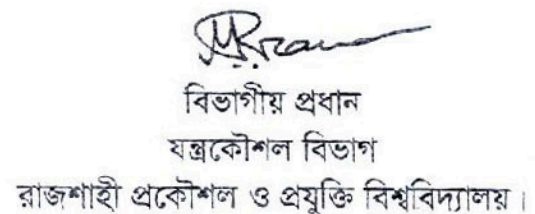 বিভাগীয় প্রধান
যন্ত্রকৌশল বিভাগ
রাজশাহী প্রকৌশল ও প্রযুক্তি বিশ্ববিদ্যালয়।